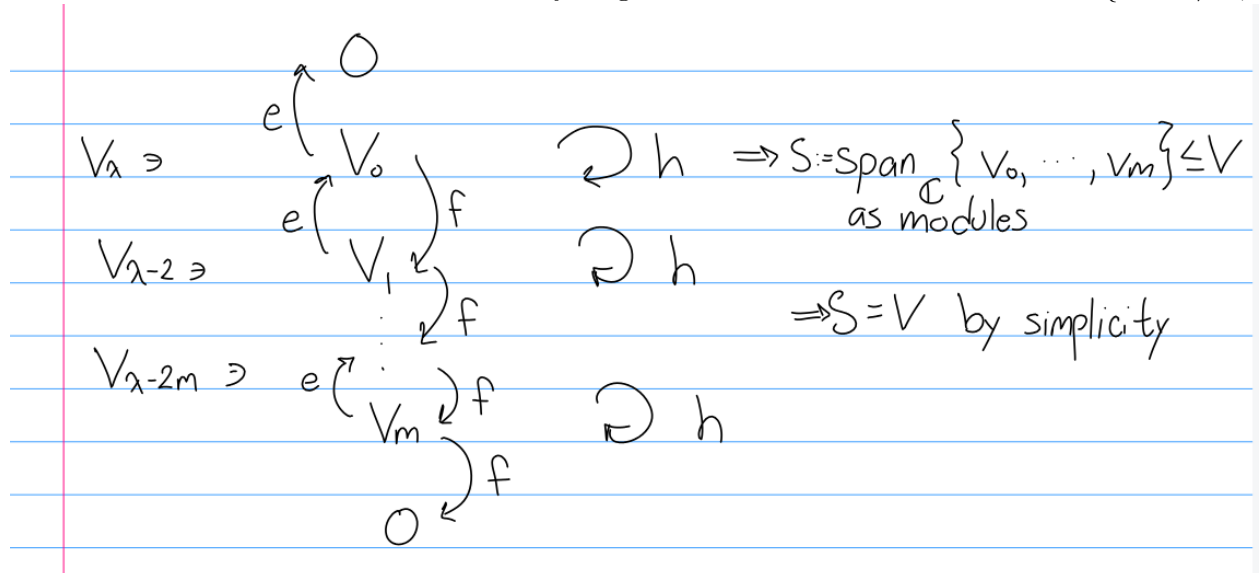 O
e
V_λ ∋ V_0 h ⇒ S:=Span_ℂ {V_0, ⋯, V_m} ≤ V
e f as modules
V_{λ-2} ∋ V_1 h
f ⇒ S = V by simplicity
V_{λ-2m} ∋ e f
V_m h
f
O